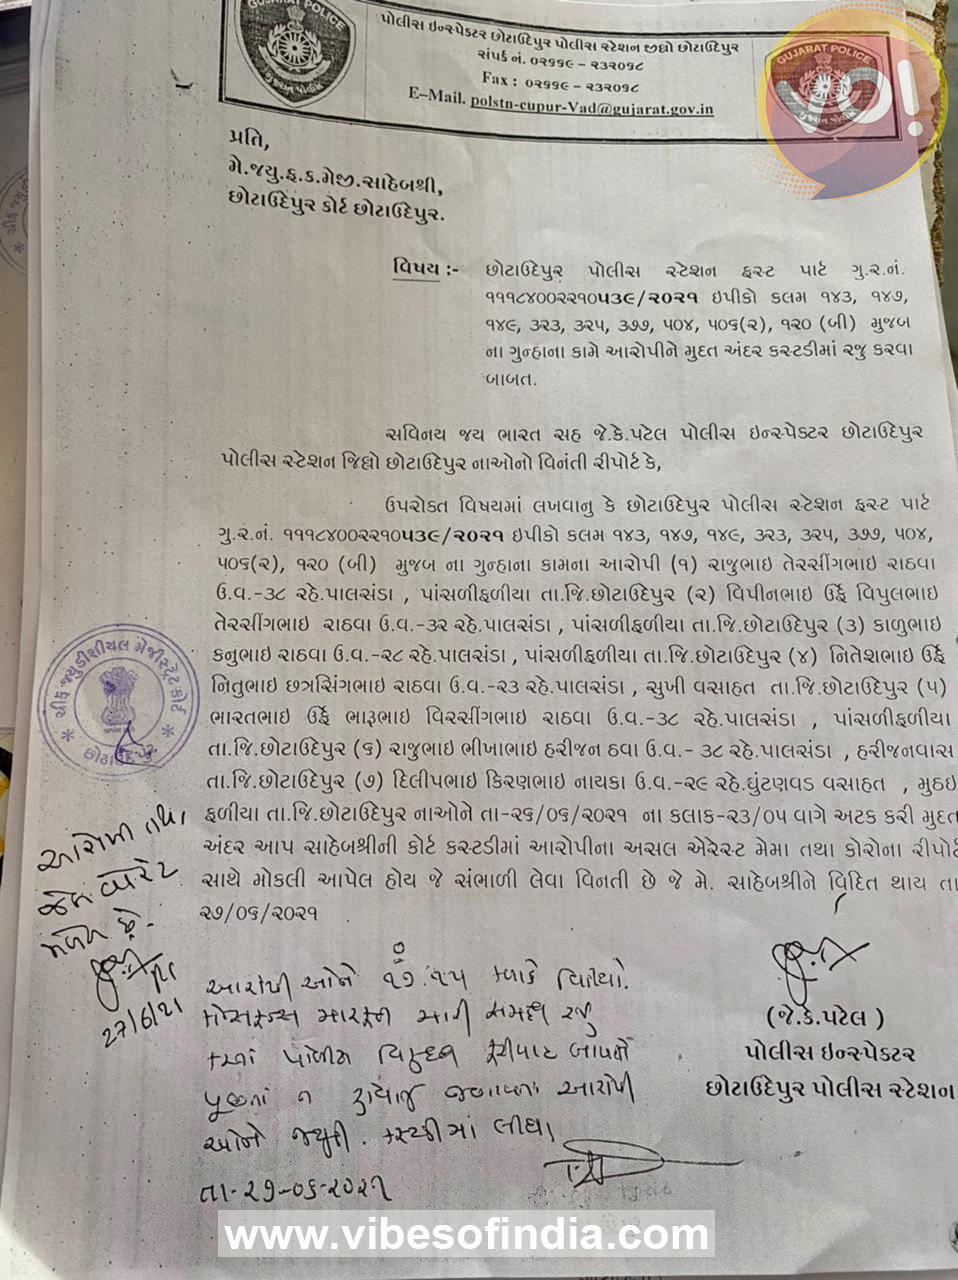 GUJARAT POLICE
ગુજરાત પોલીસ
પોલીસ ઇન્સ્પેક્ટર છોટાઉદેપુર પોલીસ સ્ટેશન જીલ્લો છોટાઉદેપુર
સંપર્ક નં. ૦૨૬૬૯ – ૨૩૨૦૧૮
Fax : ૦૨૬૬૯ – ૨૩૨૦૧૮
E–Mail. polstn-cupur-Vad@gujarat.gov.in
GUJARAT POLICE
VO!
પ્રતિ,
મે.જયુ.ફ.ક.મેજી.સાહેબશ્રી,
છોટાઉદેપુર કોર્ટ છોટાઉદેપુર.
વિષય :- છોટાઉદેપુર પોલીસ સ્ટેશન ફસ્ટ પાર્ટ ગુ.ર.નં.
૧૧૧૮૪૦૦૨૨૧૦૫૩૯/૨૦૨૧ ઇપીકો કલમ ૧૪૩, ૧૪૭,
૧૪૯, ૩૨૩, ૩૨૫, ૩૭૭, ૫૦૪, ૫૦૬(૨), ૧૨૦ (બી) મુજબ
ના ગુન્હાના કામે આરોપીને મુદત અંદર કસ્ટડીમાં રજુ કરવા
બાબત.
સવિનય જય ભારત સહ જે.કે.પટેલ પોલીસ ઇન્સ્પેક્ટર છોટાઉદેપુર
પોલીસ સ્ટેશન જિલ્લો છોટાઉદેપુર નાઓનો વિનંતી રીપોર્ટ કે,
ઉપરોક્ત વિષયમાં લખવાનુ કે છોટાઉદેપુર પોલીસ સ્ટેશન ફસ્ટ પાર્ટ
ગુ.ર.નં. ૧૧૧૮૪૦૦૨૨૧૦૫૩૯/૨૦૨૧ ઇપીકો કલમ ૧૪૩, ૧૪૭, ૧૪૯, ૩૨૩, ૩૨૫, ૩૭૭, ૫૦૪,
૫૦૬(૨), ૧૨૦ (બી) મુજબ ના ગુન્હાના કામના આરોપી (૧) રાજુભાઇ તેરસીંગભાઇ રાઠવા
ઉ.વ.-૩૮ રહે.પાલસંડા , પાંસળીફળીયા તા.જિ.છોટાઉદેપુર (૨) વિપીનભાઇ ઉર્ફે વિપુલભાઇ
તેરસીંગભાઇ રાઠવા ઉ.વ.-૩૨ રહે.પાલસંડા , પાંસળીફળીયા તા.જિ.છોટાઉદેપુર (૩) કાળુભાઇ
કનુભાઇ રાઠવા ઉ.વ.-૨૮ રહે.પાલસંડા , પાંસળીફળીયા તા.જિ.છોટાઉદેપુર (૪) નિતેશભાઇ ઉર્ફે
નિતુભાઇ છત્રસિંગભાઇ રાઠવા ઉ.વ.-૨૩ રહે.પાલસંડા , સુખી વસાહત તા.જિ.છોટાઉદેપુર (૫)
ભારતભાઇ ઉર્ફે ભારૂભાઇ વિરસીંગભાઇ રાઠવા ઉ.વ.-૩૮ રહે.પાલસંડા , પાંસળીફળીયા
તા.જિ.છોટાઉદેપુર (૬) રાજુભાઇ ભીખાભાઇ હરીજન ઠવા ઉ.વ.- ૩૮ રહે.પાલસંડા , હરીજનવાસ
તા.જિ.છોટાઉદેપુર (૭) દિલીપભાઇ કિરણભાઇ નાયકા ઉ.વ.-૨૯ રહે.ઘુંટણવડ વસાહત , મુઠઇ
ફળીયા તા.જિ.છોટાઉદેપુર નાઓને તા-૨૬/૦૬/૨૦૨૧ ના કલાક-૨૩/૦૫ વાગે અટક કરી મુદત
અંદર આપ સાહેબશ્રીની કોર્ટ કસ્ટડીમાં આરોપીના અસલ એરેસ્ટ મેમા તથા કોરોના રીપોર્ટ
સાથે મોકલી આપેલ હોય જે સંભાળી લેવા વિનતી છે જે મે. સાહેબશ્રીને વિદિત થાય તા
૨૭/૦૬/૨૦૨૧
ચીફ જ્યુડીશીયલ મેજીસ્ટ્રેટ કોર્ટ
છોટાઉદેપુર
આરોપી તથા
જેલ વોરંટ
મળેલ છે.
27/6/21
આરોપી ઓને ૧૭.૧૫ કલાકે વિડીયો
કોન્ફરન્સ મારફત મારી સમક્ષ રજુ
કર્યા પોલીસ વિરૂધ્ધ ફરીયાદ બાબતે
પૂછતાં ન હોવાનુ જણાવતા આરોપી
ઓને જ્યુડી. કસ્ટડીમાં લીધા
તા-૨૭-૦૬-૨૦૨૧
(જે.કે.પટેલ )
પોલીસ ઇન્સ્પેક્ટર
છોટાઉદેપુર પોલીસ સ્ટેશન
www.vibesofindia.com